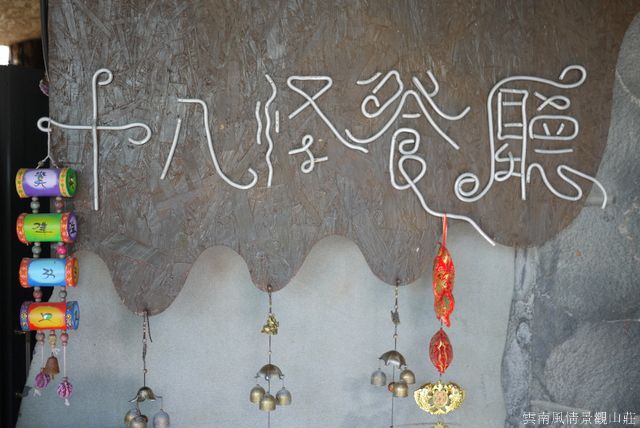 十八怪餐廳
雲南風情景觀山莊